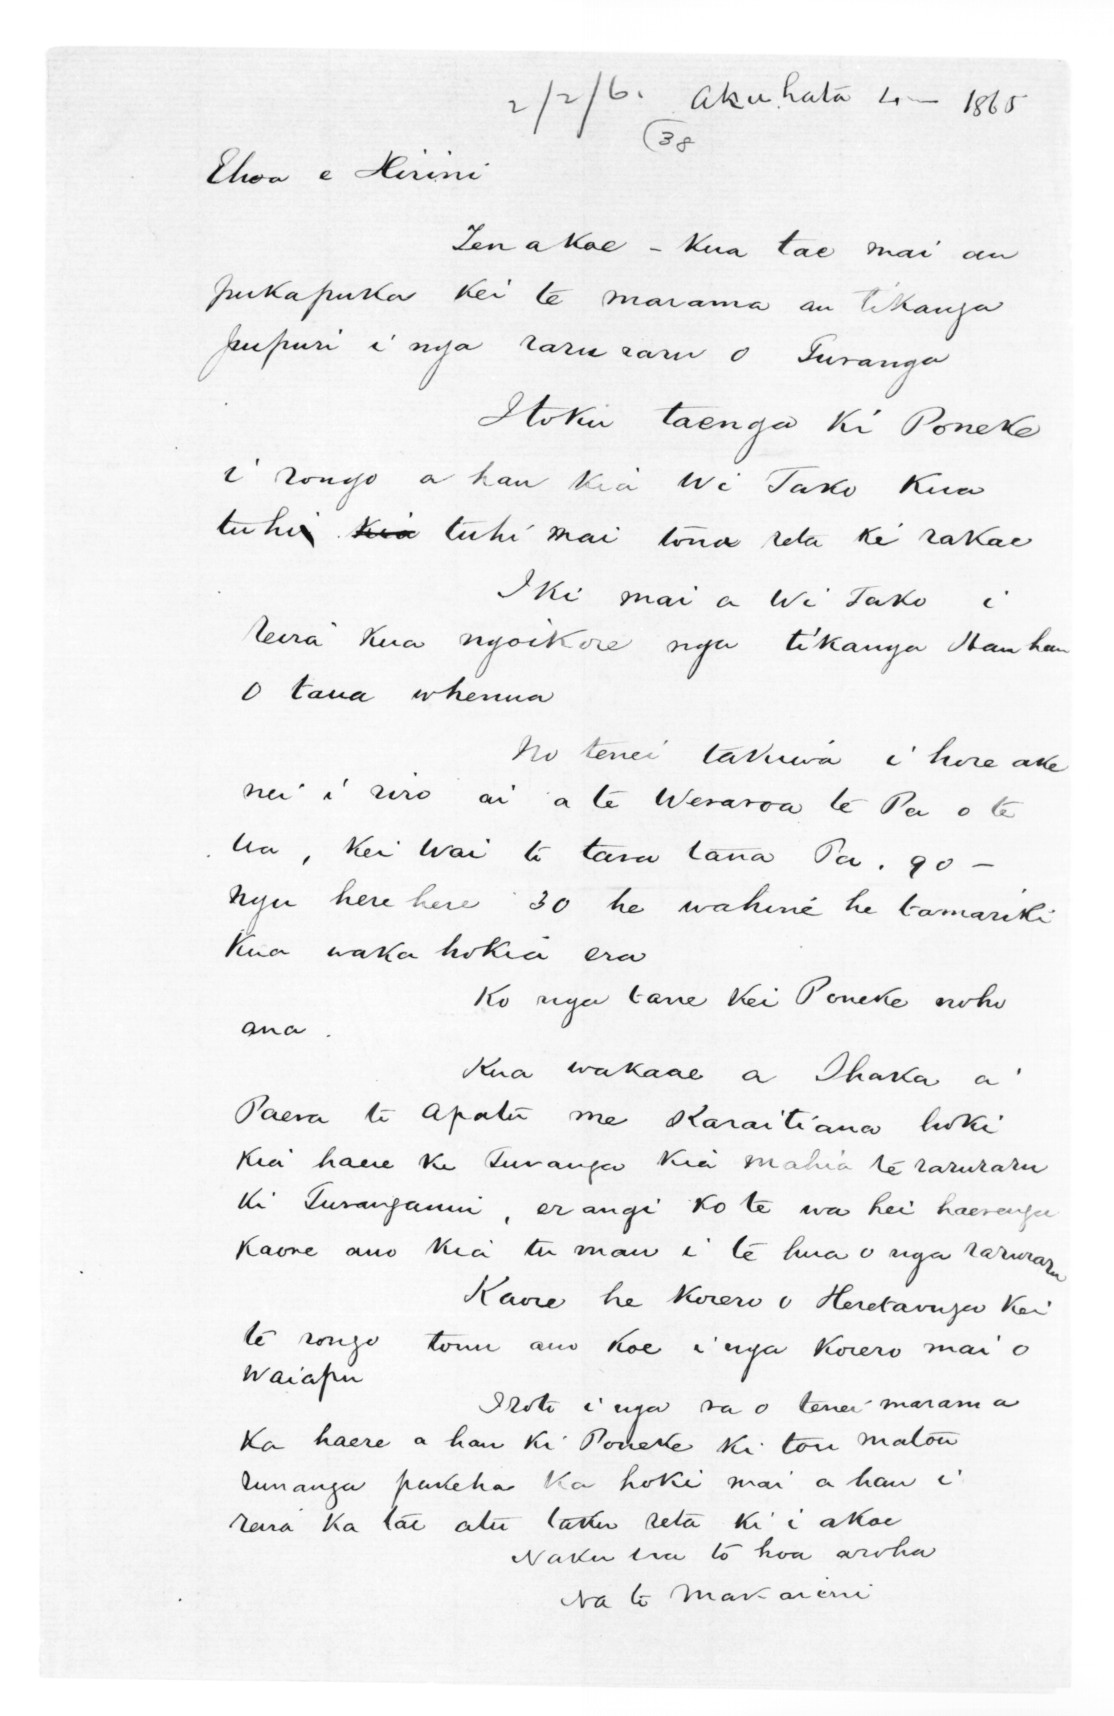 2/2/6. Akuhata 4 — 1865
38
Ehoa e Hirini
Tena Koe - Kua tae mai au
pukapuka kei te marama au tikanga
pupuri i nga raruraru o Turanga
Itoku taenga ki Poneke
i rongo a hau kia Wi Tako Kua
tuhi kia tuhi mai tona reta ki rakoe
Iki mai a Wi Tako i
reira kua ngoikore nga tikanga Hauhau
o taua whenua
No tenei takiwa i hore ake
nei i riro ai a te Weraroa te Pa o te
Ua, kei Wai to tara tana Pa. 90 —
nga here here 30 he wahine he tamariki
Kua waka hokia era
Ko nga tane kei Poneke noho
ana.
Kua wakaae a Ihaka a
Paera te Apatu me Karaitiana hoki
kia haere ki Turanga kia mahia te raruraru
ki Turanganui, er angi ko te wa hei haerenga
kaore ano kia tu mau i te hua o nga raruraru
Kaore he korero o Heretaunga kei
te rongo tonu ano koe i nga korero mai o
Waiapu
Iroto i nga ra o tenei marama
ka haere a hau ki Poneke ki tou matou
runanga pakeha ka hoki mai a hau i
reira ka tae atu taku reta ki i akoe
Naku na to hoa aroha
Na te Makarini